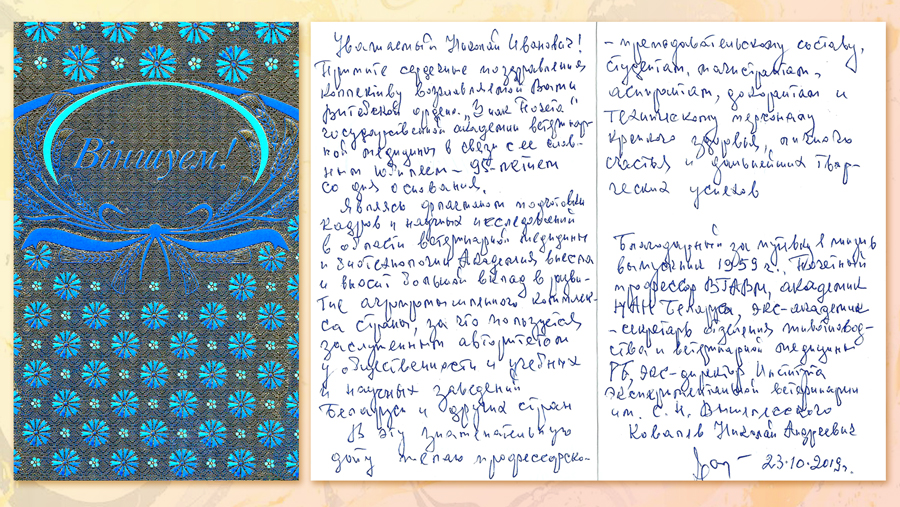 Віншуем!
Уважаемый Николай Иванович!
Примите сердечные поздравления
коллективу возглавляемой Вами
Витебской ордена "Знак Почета"
государственной академии ветеринар-
ной медицины в связи с ее слав-
ным юбилеем - 95-летием
со дня основания.
Являясь флагманом подготовки
кадров и научных исследований
в области ветеринарной медицины
и биотехнологии Академия внесла
и вносит большой вклад в разви-
тие агропромышленного комплек-
са страны, за что пользуется
заслуженным авторитетом
у общественности и учебных
и научных заведений
Беларуси и других стран
В эту знаменательную
дату желаю профессорско-
- преподавательскому составу,
студентам, магистрантам,
аспирантам, докторантам и
техническому персоналу
крепкого здоровья, личного
счастья и дальнейших твор-
ческих успехов
Благодарный за путевку в жизнь
выпускник 1959 г., Почетный
профессор ВГАВМ, академик
НАН Беларуси, экс-академик
- секретарь отделения животновод-
ства и ветеринарной медицины
РБ, экс-директор Института
экспериментальной ветеринарии
им. С. Н. Вышелесского
Ковалев Николай Андреевич
23.10.2019г.